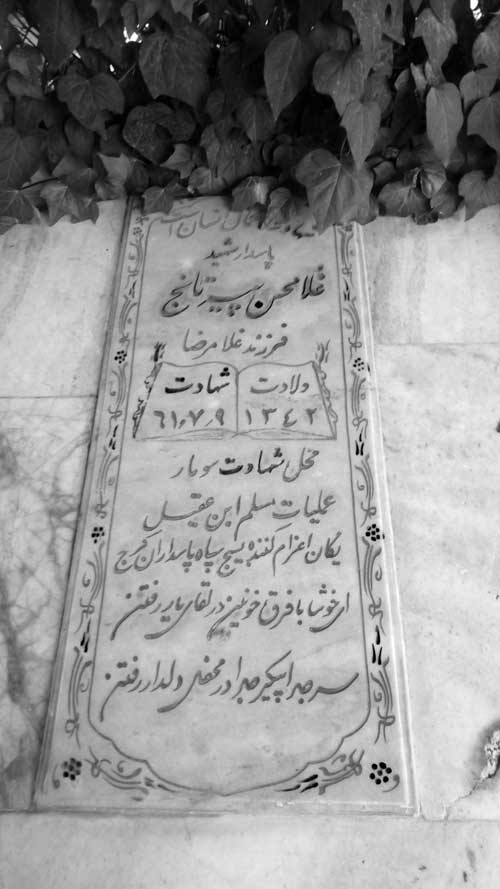 پاسدار شهید
غلامحسن پیرتانج
فرزند غلامرضا
ولادت شهادت
۱۳٤۲ ٦۱٫۷٫۹
محل شهادت سومار
عملیات مسلم ابن عقیل
یگان اعزام کننده بسیج سپاه پاسداران کرج
ای خوشا با فرق خونین در لقای یار رفتن
سر جدا پیکر جدا در محفل دلدار رفتن